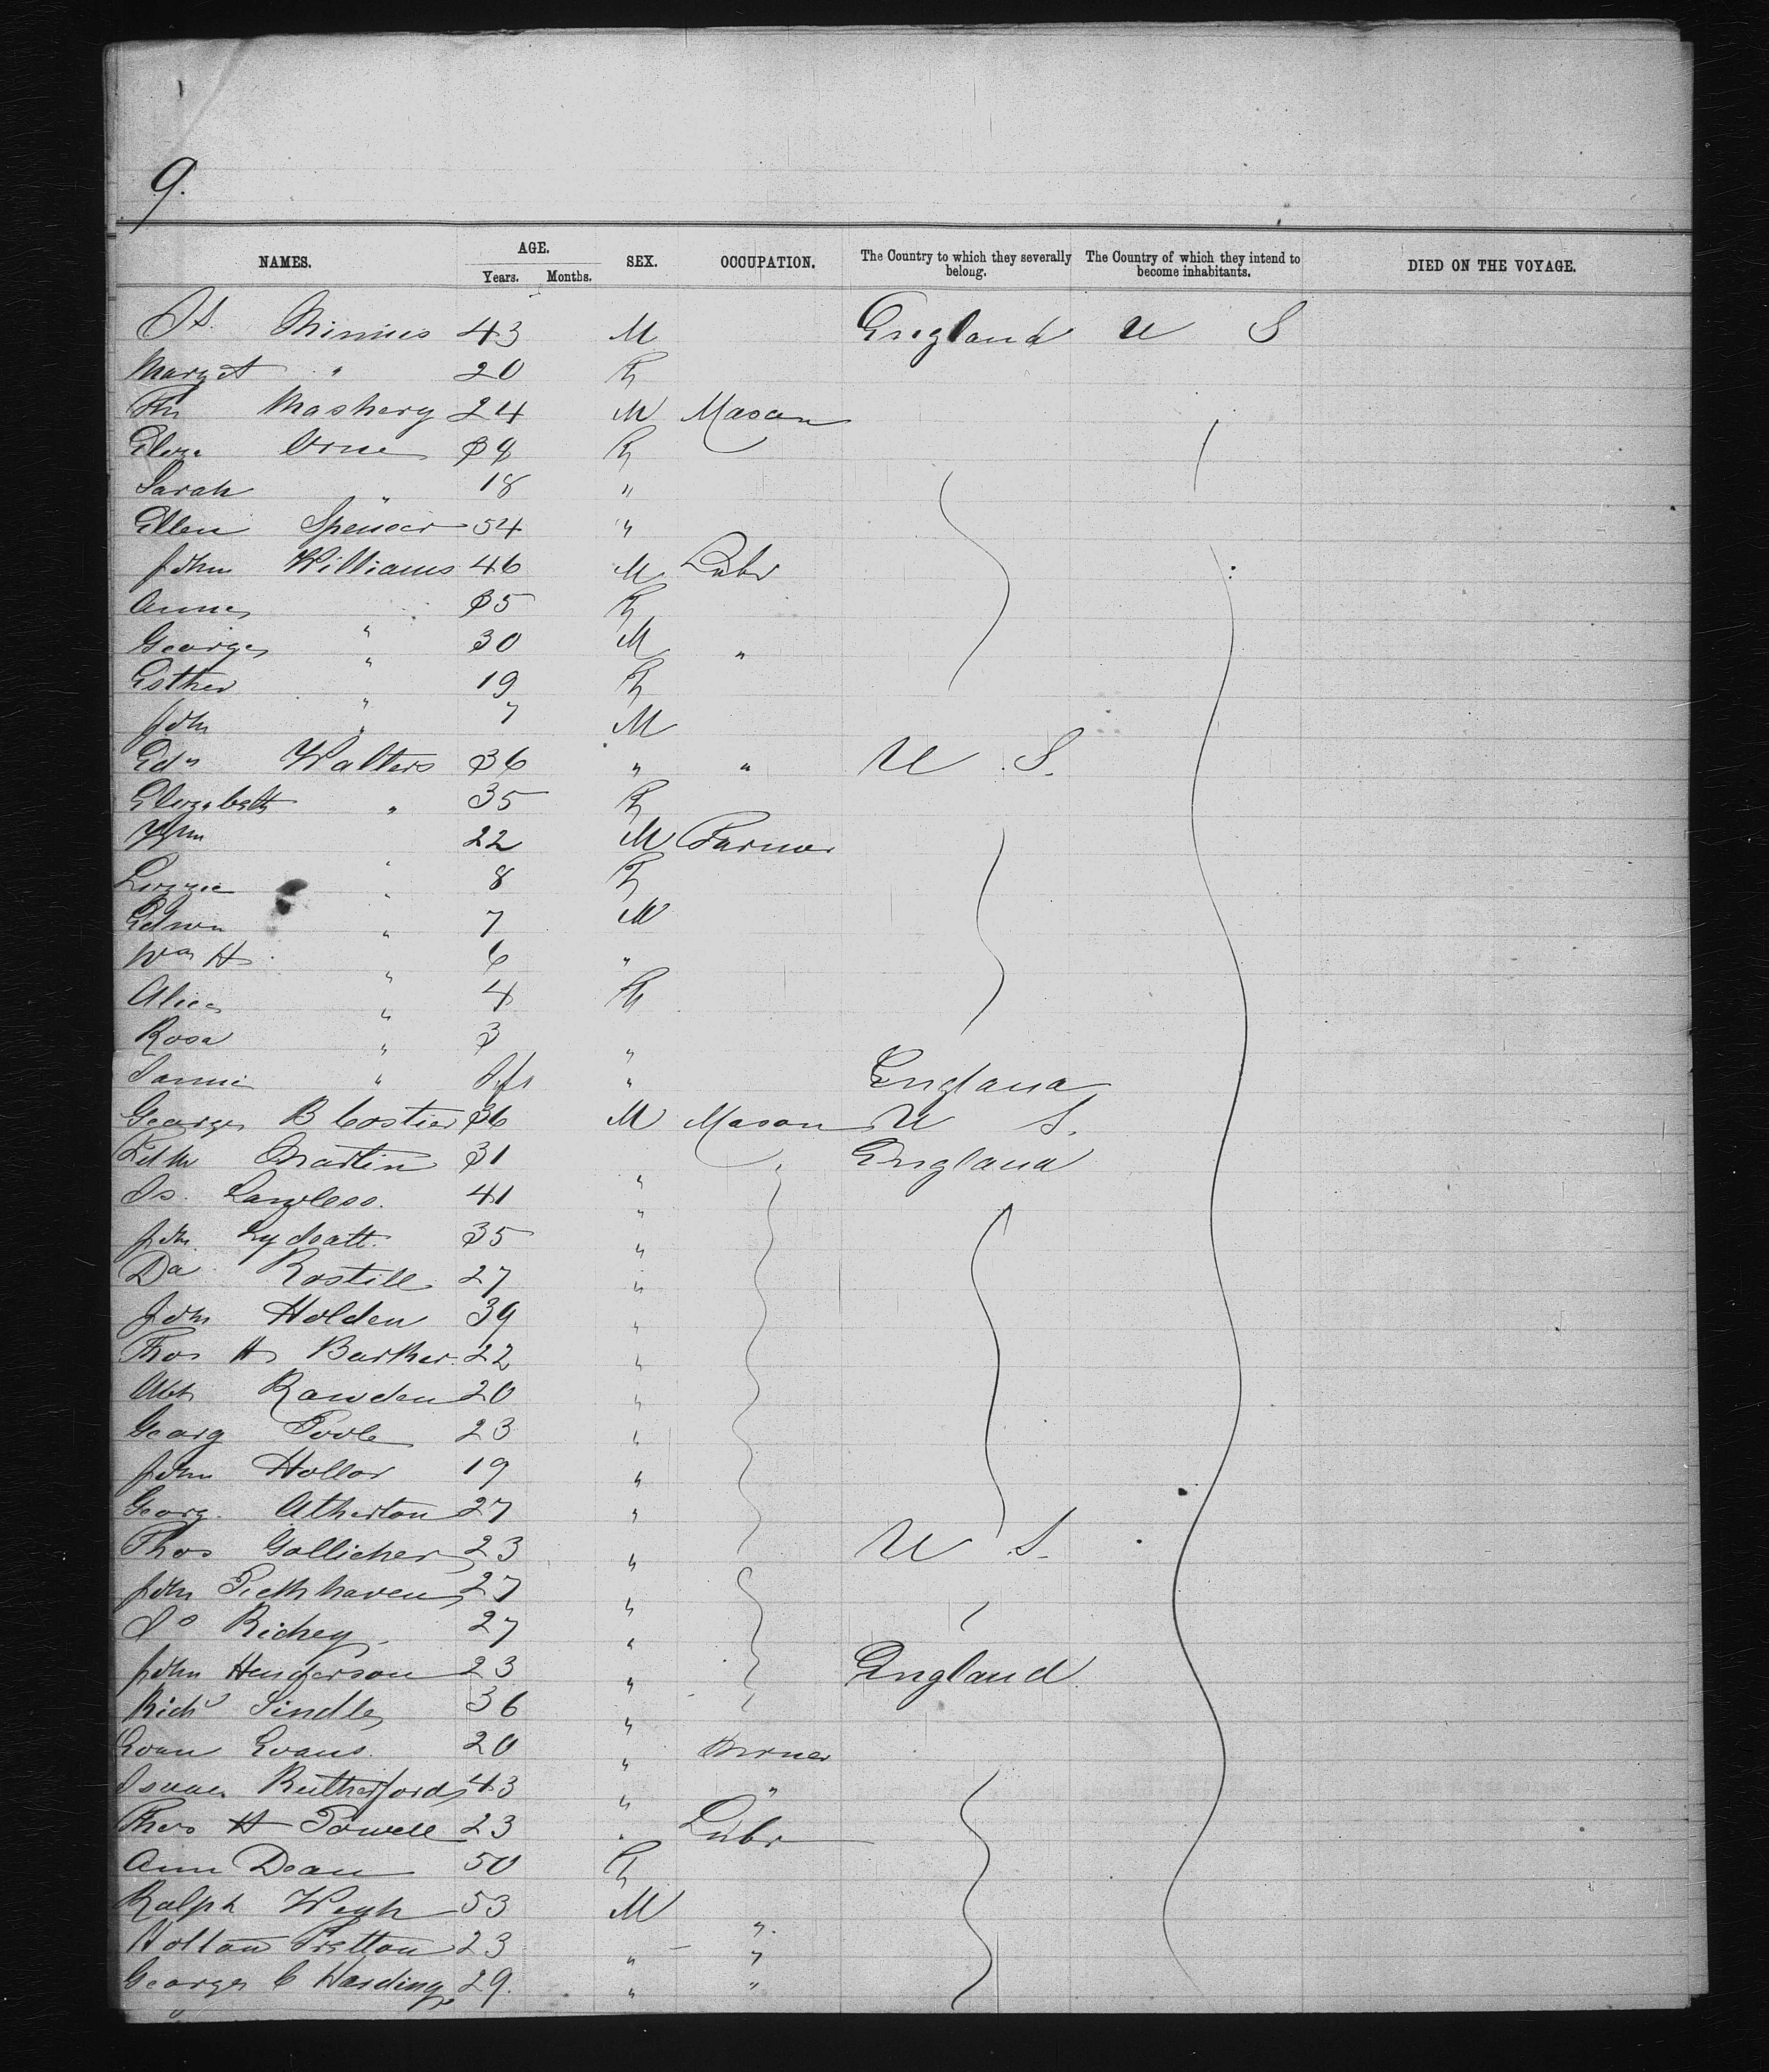 9.
NAMES. AGE. Years. Months. SEX. OCCUPATION. The Country to which they severally belong. The Country of which they intend to become inhabitants. DIED ON THE VOYAGE.
43 M England U S
Margt " 20 F
24 M Mason
Eliza Orme 39 F
Sarah " 18 "
Ellen Spencer 54 "
John Williams 46 M Labr
Anne " 35 F
George " 30 M "
Esther " 19 F
John " 7 M
Edwd Walters 36 " " U S.
Elizabeth " 35 F
Wm " 22 M Farmer
Lizzie " 8 F
Edwn " 7 M
Wm H " 6 "
Alice " 4 F
Rosa " 3 "
" Inft " England
George B Costier 36 M Mason U S.
Martin 31 " " England
Js. Lawless. 41 "
John Lydeatt. 35 "
Da Rostill 27 "
John Holden 39 "
Thos H Barker. 22 "
Rawden 20 "
Georg Poole 23 "
John Hollor 19 "
Georg. Atherton 27 "
Thos Gollicher 23 " U S.
John Piethhaven 27 "
Jo Richey 27 "
John Henderson 23 " England.
Richd Sindle 36 "
Evan Evans. 20 " Miner
Isaac Rutherford 43 " "
Thos H Powell 23 " Labr
Ann Dean 50 F
Ralph 53 M "
Holland 23 " "
George C Harding 29. " "